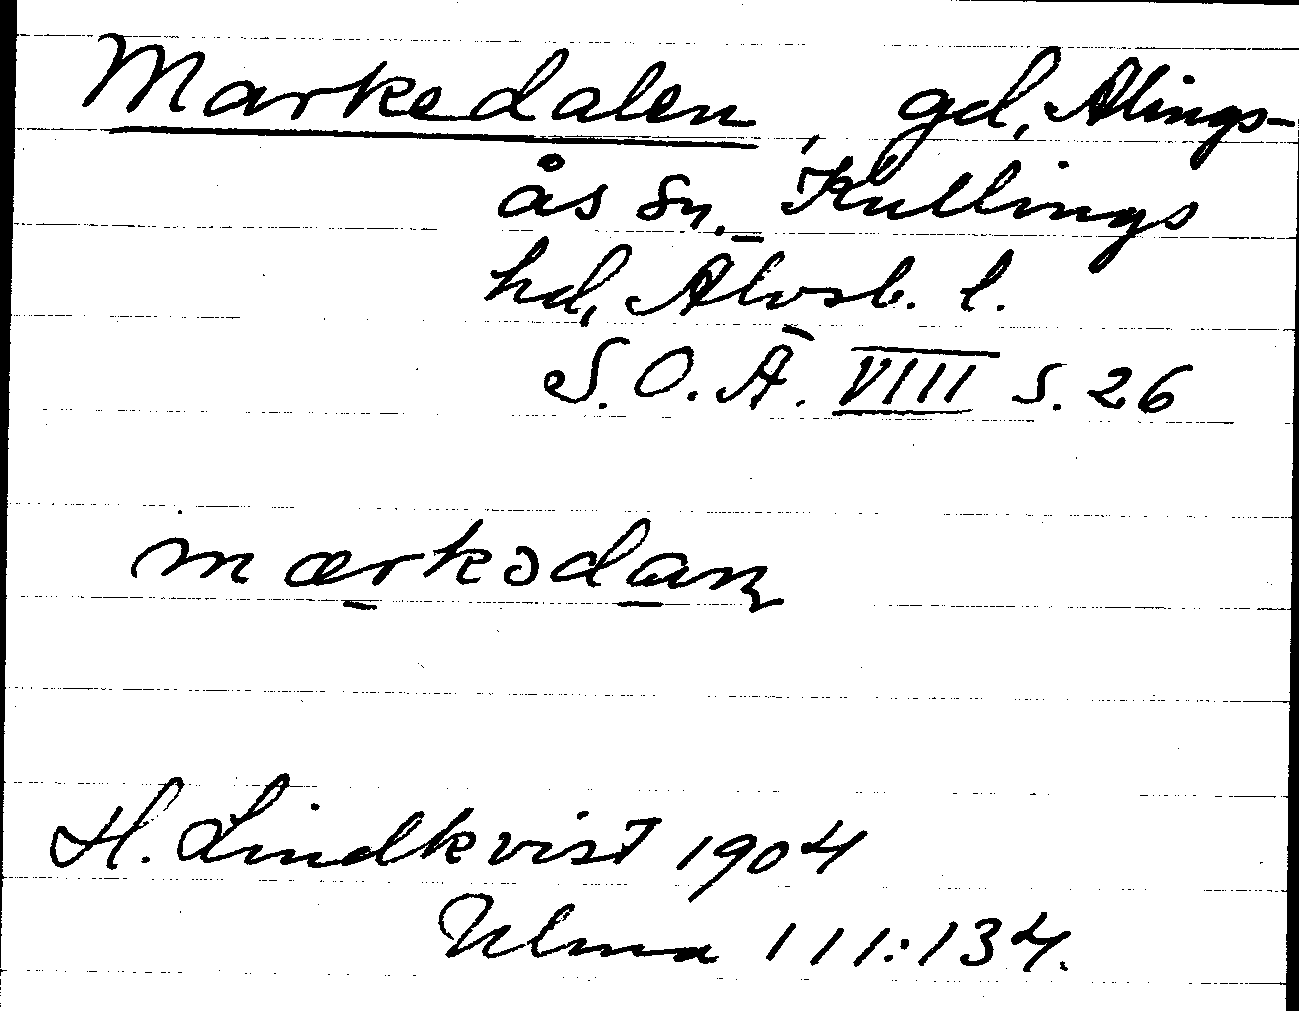 Markedalen, gd, Alings-
ås sn. Kullings
hd, Älvsb. l.
S.O.Ä. VIII s. 26
mærkədaɳ
H. Lindkvist 1904
Ulma 111:134.